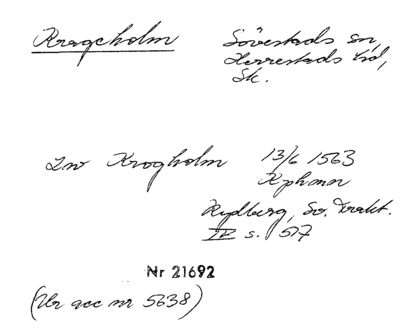 Krageholm
Sövestads sn,
Herrestads hd,
Sk.
Krogholm 13/6 1563
Kphmn
Rydberg, Sv. Trakt.
IV s. 517
Nr 21692
(Ur acc nr 5638)